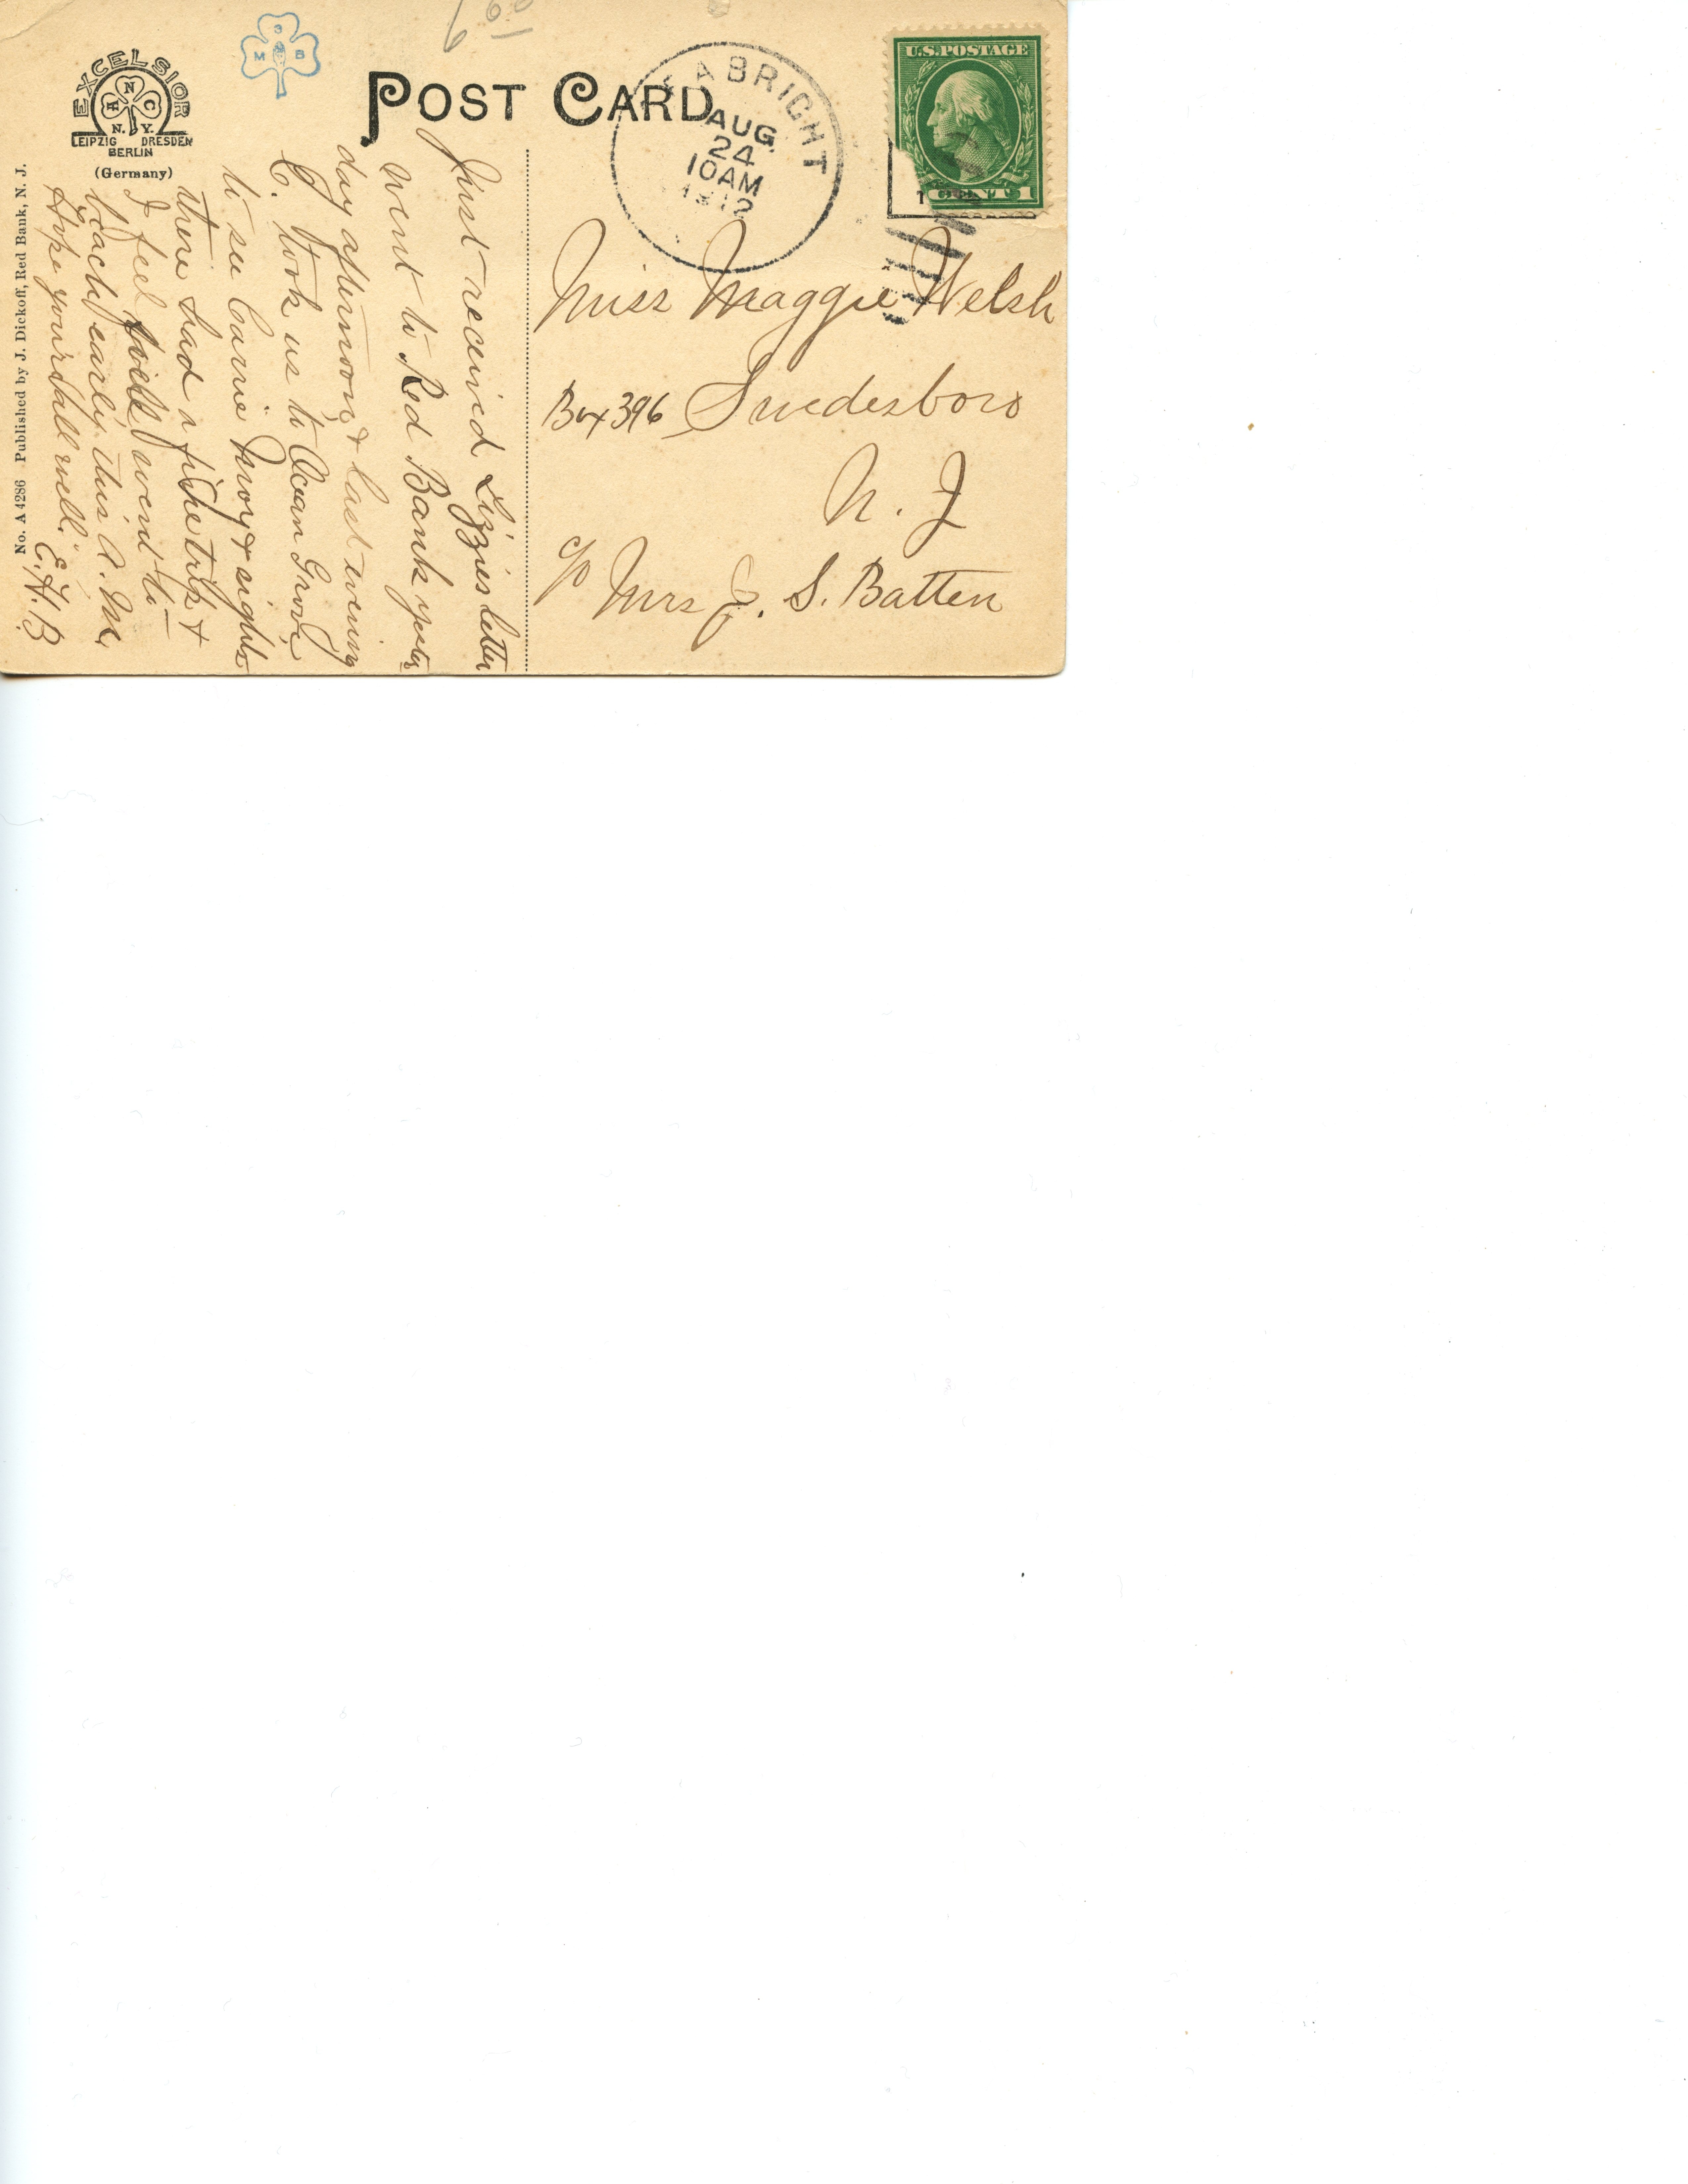 6 00
EXCELSIOR
N
A C
N. Y.
LEIPZIG DRESDEN
BERLIN
(Germany)
3
M B
POST CARD
ABRIGHT
AUG
24
10AM
1912
U.S.POSTAGE
1 CENT 1
Miss Maggie Welsh
Box 396 Swedesboro
N. J
c/o Mrs J. S. Batten
Just received Lizzies letter
went to Red Bank yester
day afternoon & last evening
C. took us to Ocean Grove,
to see Carrie & sights
there had a fine trip &
I feel well went to
beach early this A.M.
Hope your all well." E.H.B
No. A 4286 Published by J. Dickoff, Red Bank, N. J.